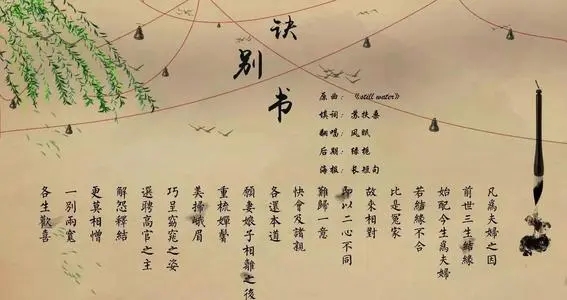 诀别书
原曲：《still water》
填词：苏扶桑
翻唱：风眠
后期：
海报：长短句
凡為夫婦之因
前世三生結緣
始配今生為夫婦
若結緣不合
比是冤家
故來相對
即以二心不同
難歸一意
快會及諸親
各還本道
願妻娘子相離之後
重梳嬋鬢
美掃峨眉
巧呈窈窕之姿
選聘高官之主
解怨釋結
更莫相憎
一別兩寬
各生歡喜